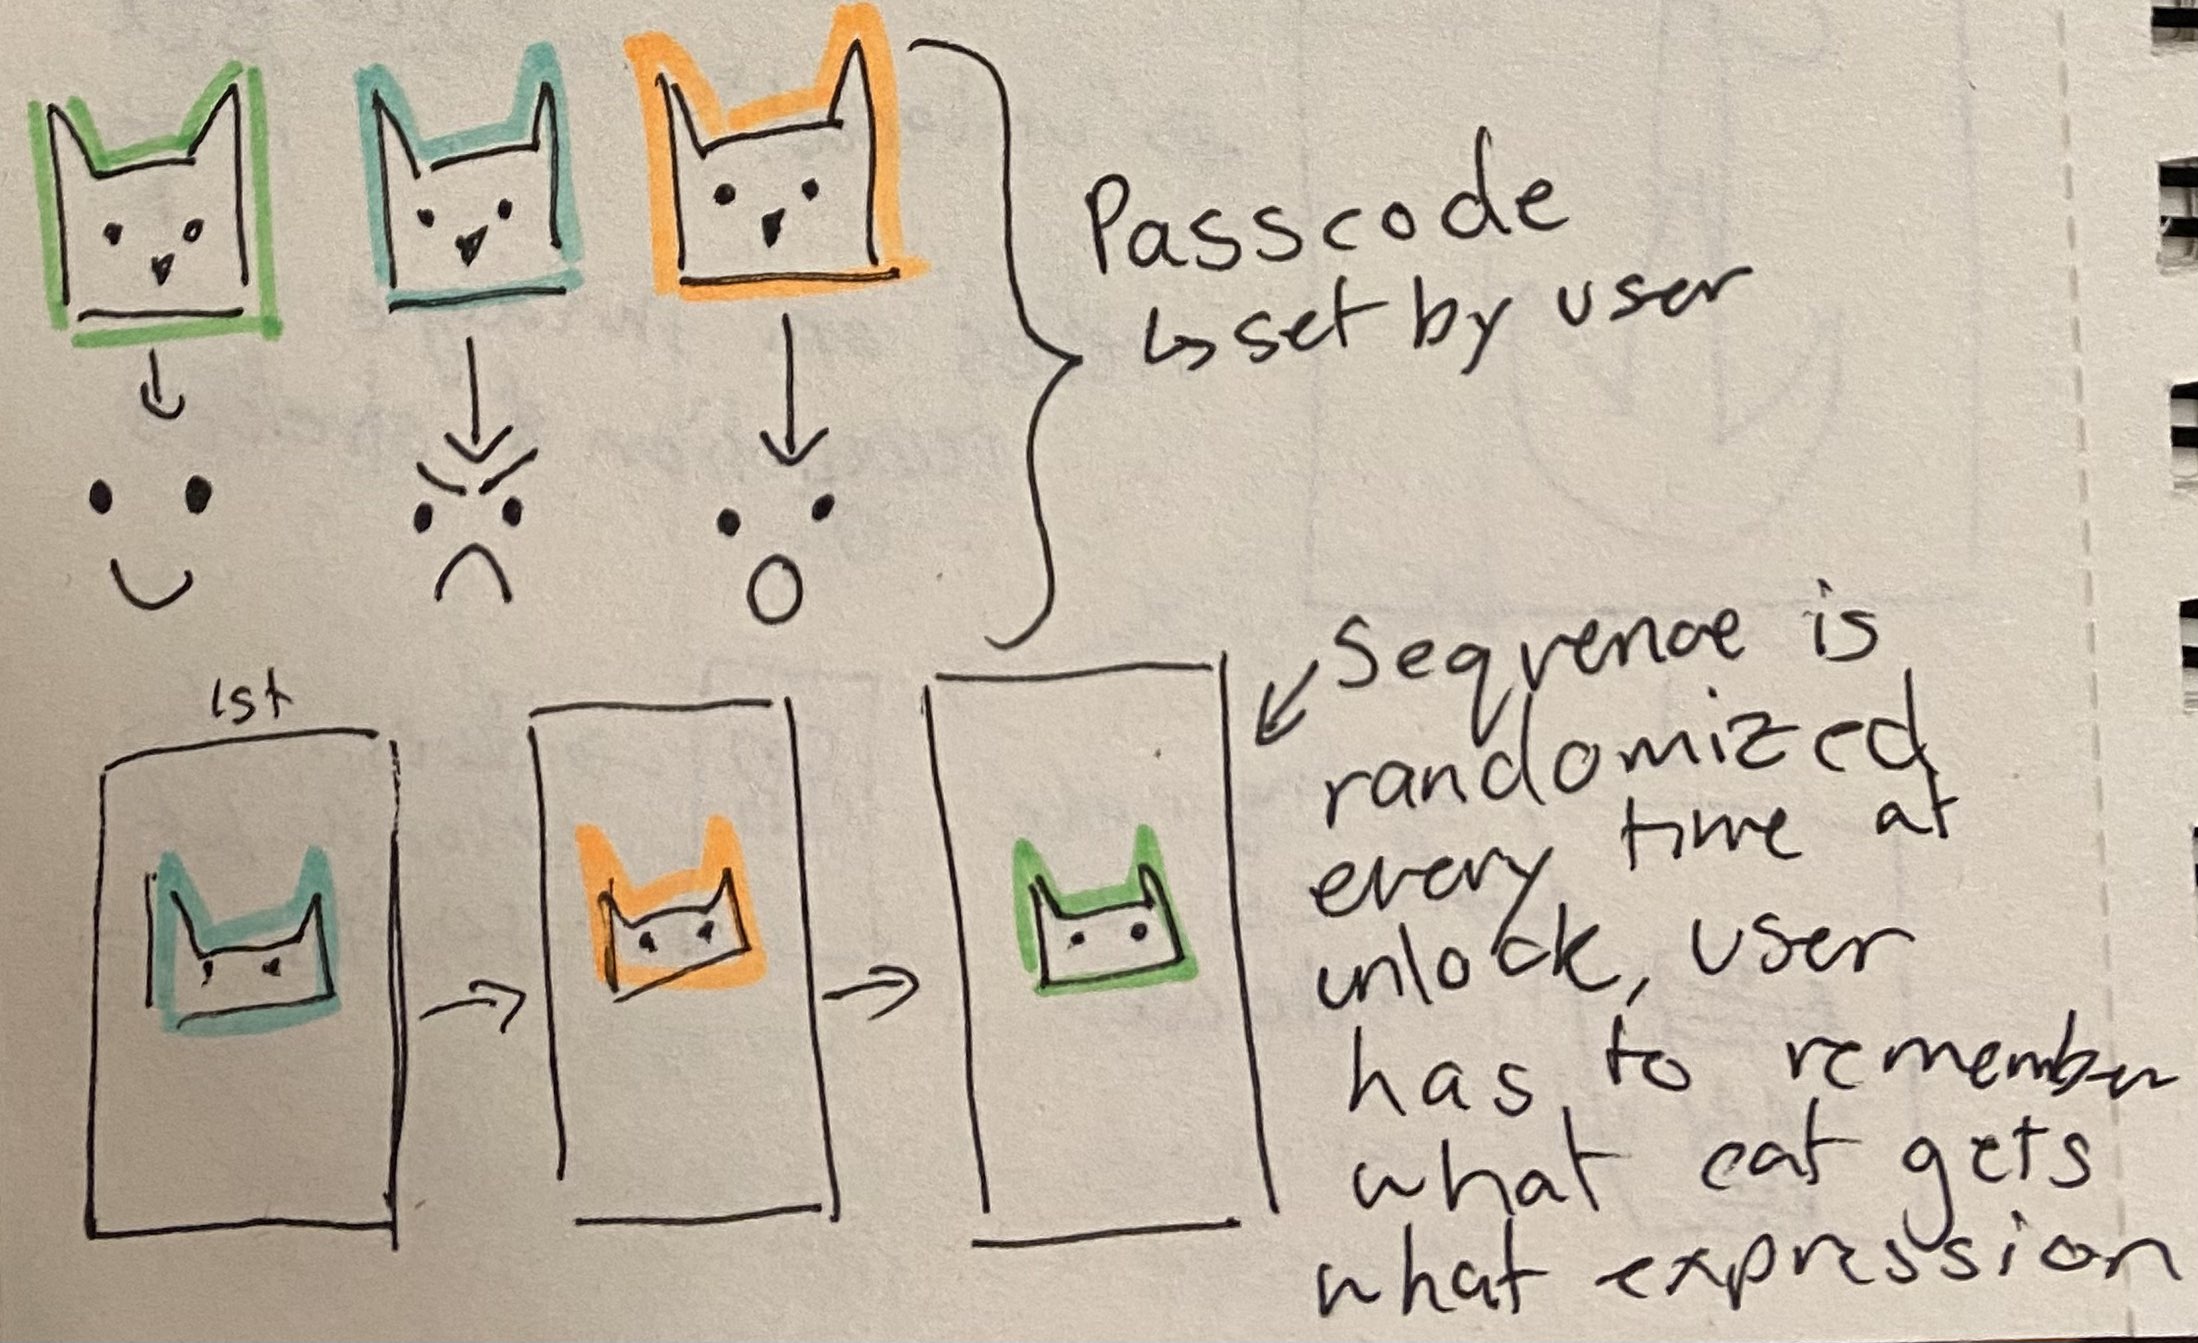 Passcode
↳ set by user
1st
Sequence is
randomized
every time at
unlock, user
has to remember
what cat gets
what expression